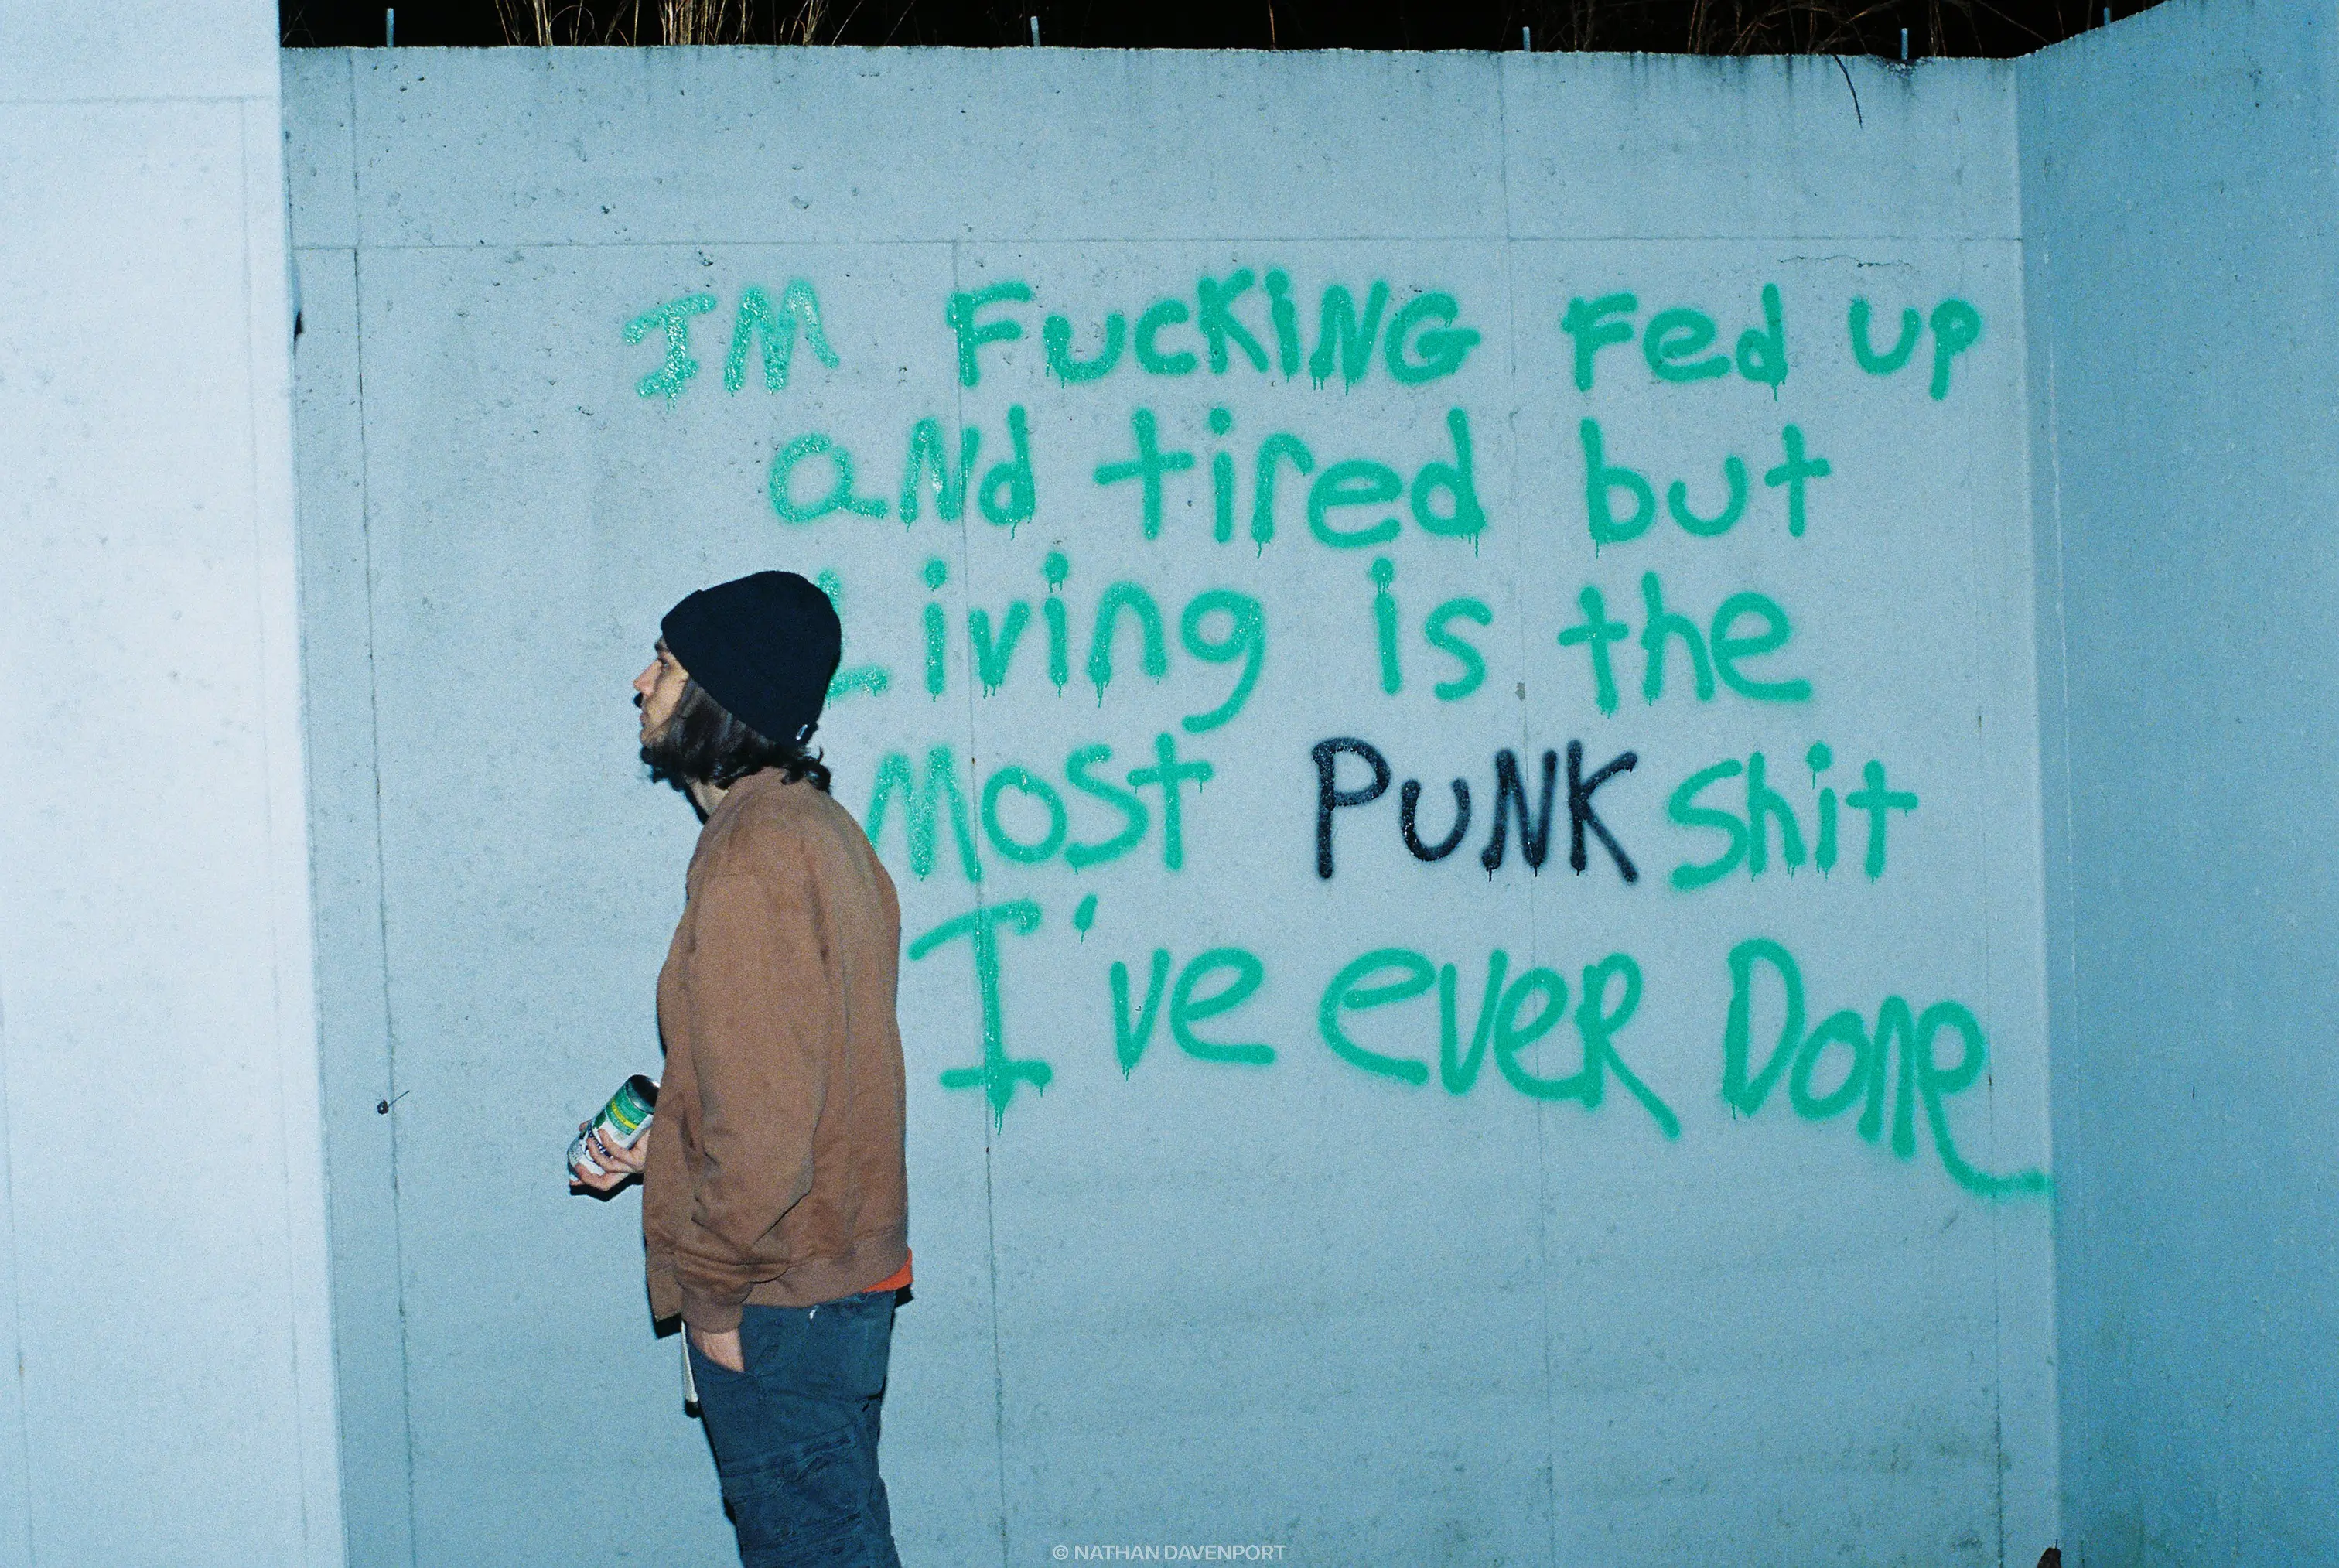 IM FUCKiNG Fed up
aNd tired but
Living is the
Most PUNK shit
I've eveR Done
© NATHAN DAVENPORT